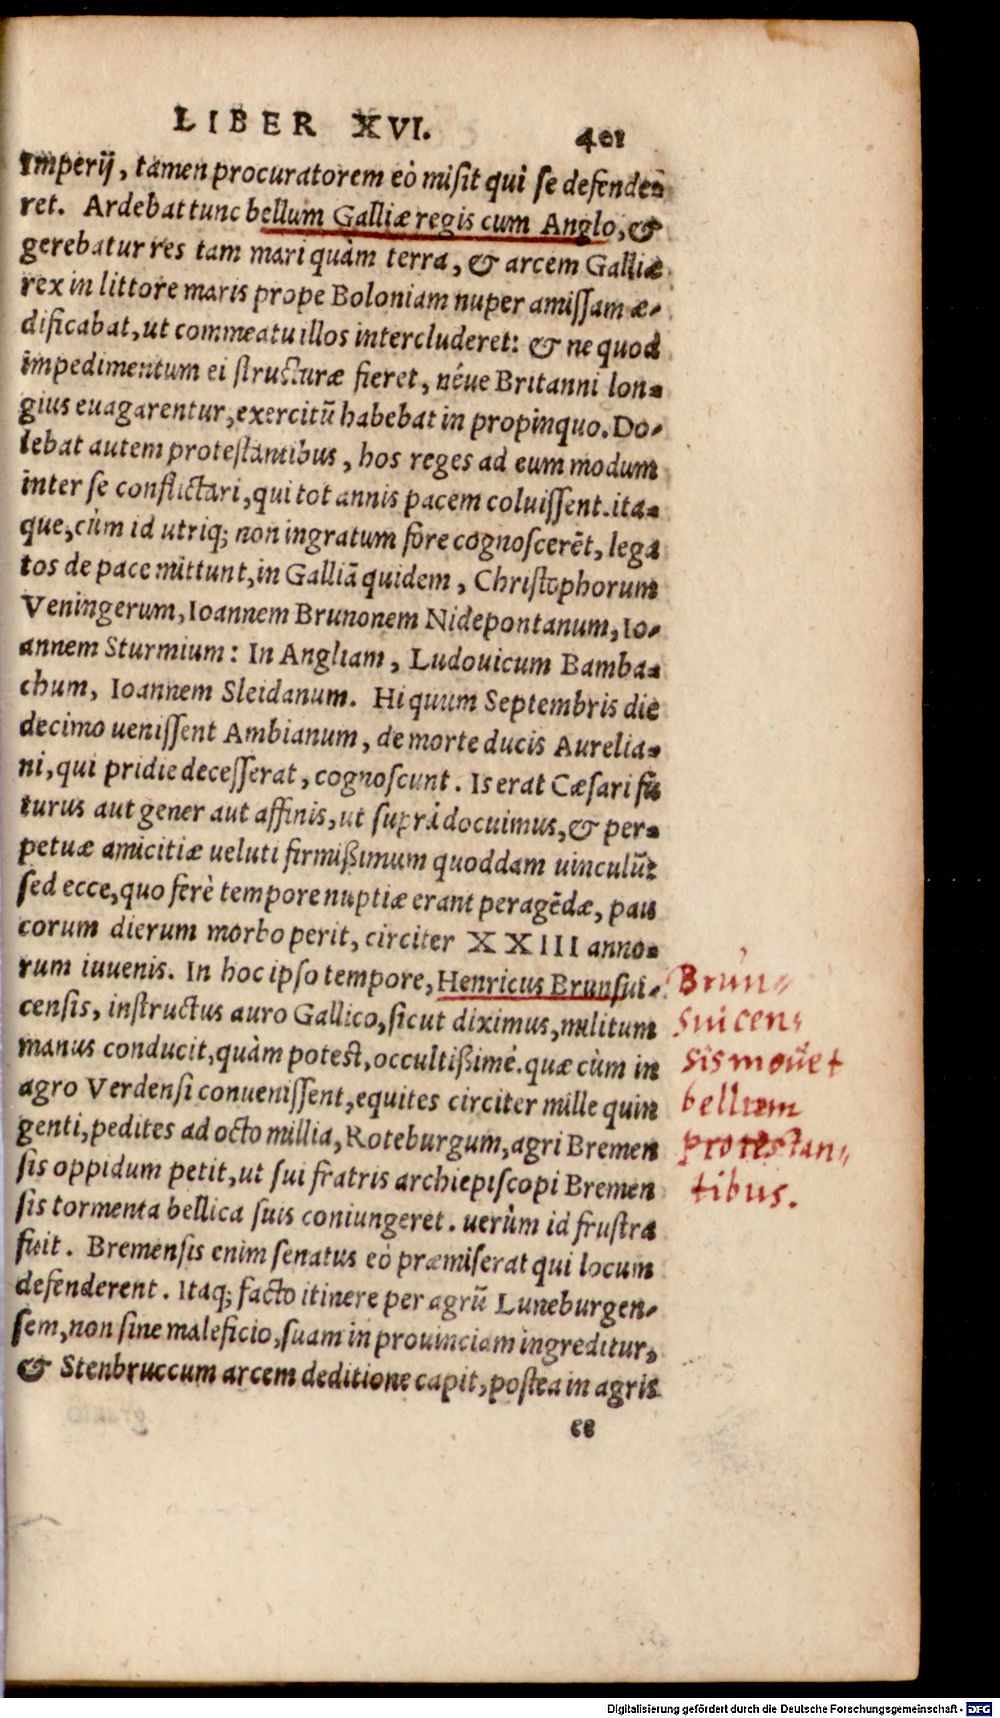 LIBER XVI. 401
Imperij, tamen procuratorem eò misit qui se defende-
ret. Ardebat tunc bellum Galliæ regis cum Anglo, &
gerebatur res tam mari quàm terra, & arcem Galliæ
rex in littore maris prope Boloniam nuper amissam æ-
dificabat, ut commeatu illos intercluderet: & ne quod
impedimentum ei structuræ fieret, néue Britanni lon-
gius euagarentur, exercitū habebat in propinquo. Do-
lebat autem protestantibus, hos reges ad eum modum
inter se conflictari, qui tot annis pacem coluissent. ita-
que, cùm id utriq; non ingratum fore cognoscerēt, lega
tos de pace mittunt, in Galliā quidem, Christophorum
Veningerum, Ioannem Brunonem Nidepontanum, Io-
annem Sturmium: In Angliam, Ludouicum Bamba-
chum, Ioannem Sleidanum. Hi quum Septembris die
decimo uenissent Ambianum, de morte ducis Aurelia-
ni, qui pridie decesserat, cognoscunt. Is erat Cæsari fu
turus aut gener aut affinis, ut suprà docuimus, & per-
petuæ amicitiæ ueluti firmißimum quoddam uinculū:
sed ecce, quo ferè tempore nuptiæ erant peragēdæ, pau
corum dierum morbo perit, circiter XXIII anno-
rum iuuenis. In hoc ipso tempore, Henricus Brunsui-
censis, instructus auro Gallico, sicut diximus, militum
manus conducit, quàm potest, occultißimè. quæ cùm in
agro Verdensi conuenissent, equites circiter mille quin
genti, pedites ad octo millia, Roteburgum, agri Bremen
sis oppidum petit, ut sui fratris archiepiscopi Bremen
sis tormenta bellica suis coniungeret. uerùm id frustra
fuit. Bremensis enim senatus eò præmiserat qui locum
defenderent. Itaq; facto itinere per agrū Luneburgen-
sem, non sine maleficio, suam in prouinciam ingreditur,
& Stenbruccum arcem deditione capit, postea in agris
ee
Brun-
suicen-
sis mouet
bellum
protestan-
tibus.
Digitalisierung gefördert durch die Deutsche Forschungsgemeinschaft - DFG